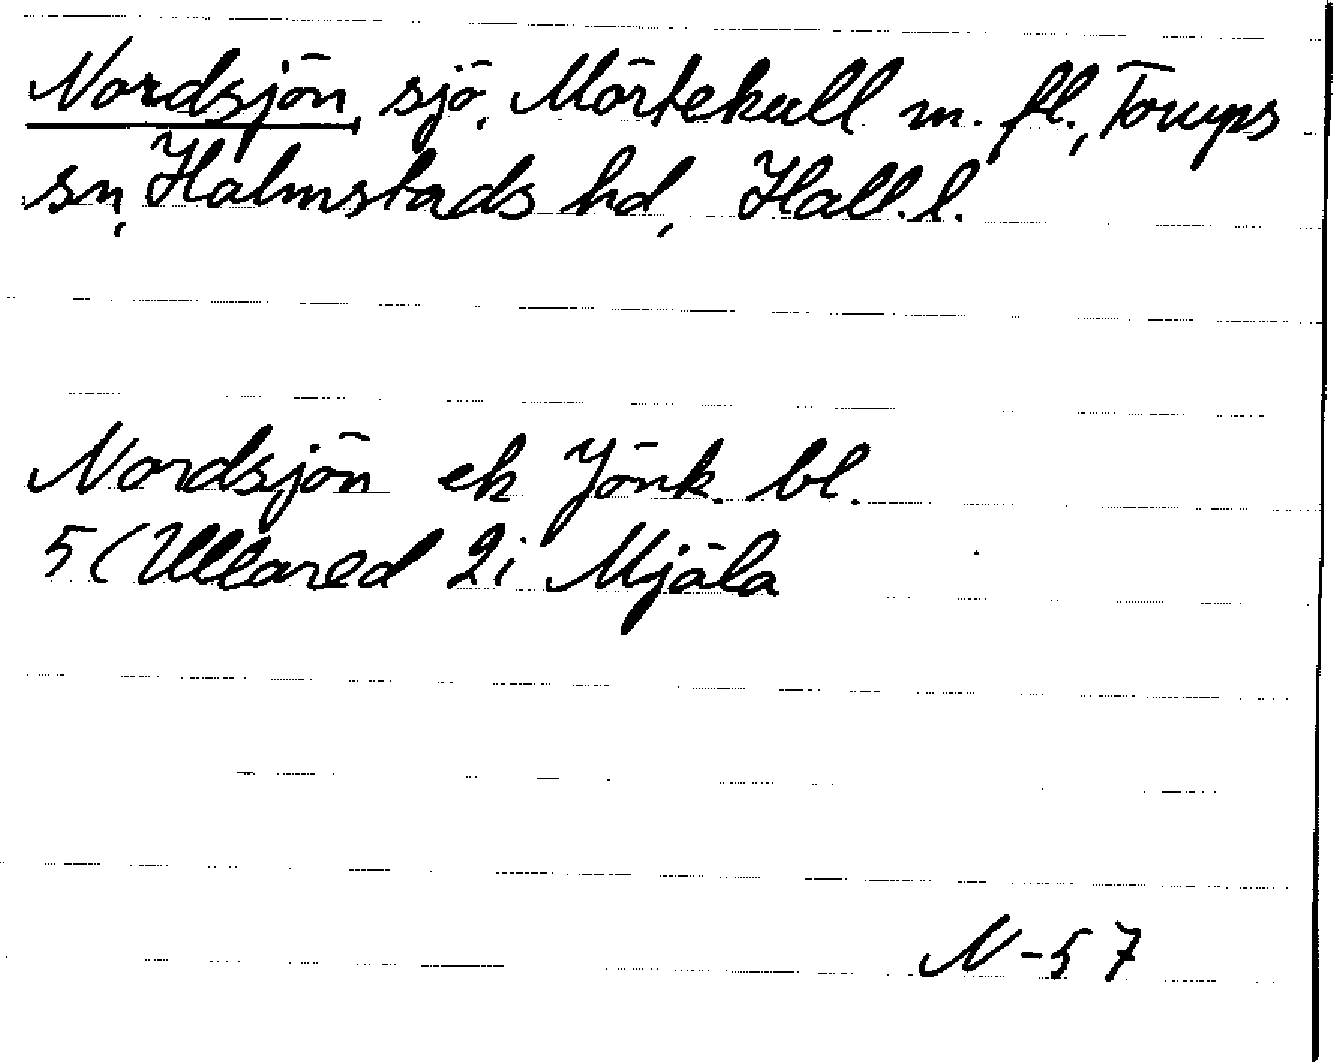 Nordsjön, sjö, Mörtekull m. fl., Torups
sn, Halmstads hd, Hall. l.
Nordsjön ek Jönk. bl.
5 (Ullared 2i Mjäla
N-57